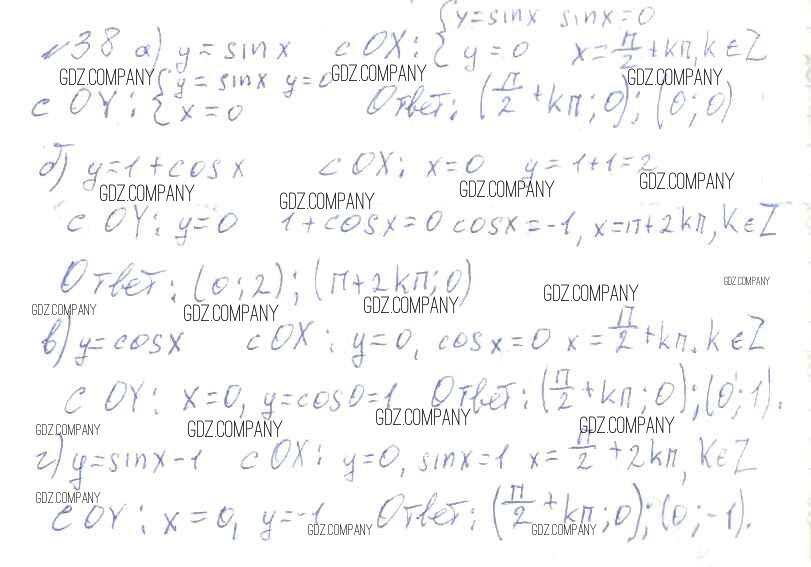 {y=sinx sinx=0
№38 а) y=sinx с OX: {y=0 x=π/2+kπ, k∈Z
GDZ.COMPANY {y=sinx y=0 GDZ.COMPANY GDZ.COMPANY
с OY: {x=0 Ответ: (π/2+kπ;0); (0;0)
б) y=1+cosx с OX: x=0 y=1+1=2
GDZ.COMPANY GDZ.COMPANY GDZ.COMPANY GDZ.COMPANY
с OY: y=0 1+cosx=0 cosx=-1, x=π+2kπ, k∈Z
Ответ: (0;2); (π+2kπ;0)
GDZ.COMPANY GDZ.COMPANY GDZ.COMPANY GDZ.COMPANY GDZ.COMPANY
в) y=cosx с OX: y=0, cosx=0 x=π/2+kπ. k∈Z
с OY: x=0, y=cos0=1 Ответ: (π/2+kπ;0); (0;1).
GDZ.COMPANY GDZ.COMPANY GDZ.COMPANY GDZ.COMPANY
г) y=sinx-1 с OX: y=0, sinx=1 x=π/2+2kπ, k∈Z
GDZ.COMPANY
с OY: x=0, y=-1 Ответ: (π/2+kπ;0); (0;-1).
GDZ.COMPANY GDZ.COMPANY